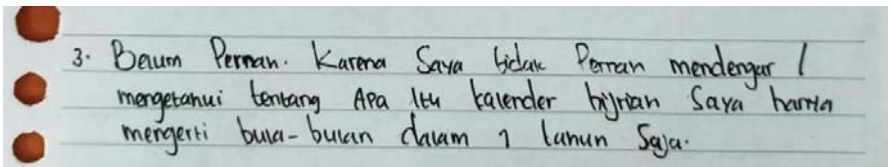 3. Belum Pernah. Karena Saya tidak Pernah mendengar /
mengetahui tentang Apa Itu kalender hijriah Saya hanya
mengerti bula-bulan dalam 1 tahun Saja.